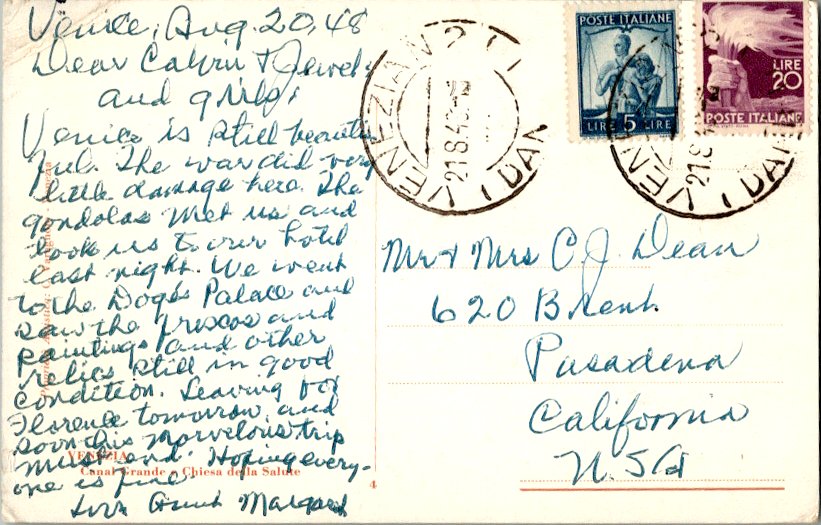 Venice, Aug 20, 48
Dear Calvin & Jewel
and girls:
Venice is still beauti
ful. The war did very
little damage here. The
gondolas met us and
took us to our hotel
last night. We went
to the Doge's Palace and
saw the frescos and
paintings and other
relics still in good
condition. Leaving for
Florence tomorrow and
soon this marvelous trip
must end. Hoping every-
one is fine.
Love Aunt Margaret
VENEZIA
Canal Grande e Chiesa della Salute
4
POSTE ITALIANE
LIRE 5 LIRE
LIRE
20
POSTE ITALIANE
VENEZIA
21.8.48
VENEZIA
21.8
Mr & Mrs C. J. Dean
620 Brent
Pasadena
California
U.S.A